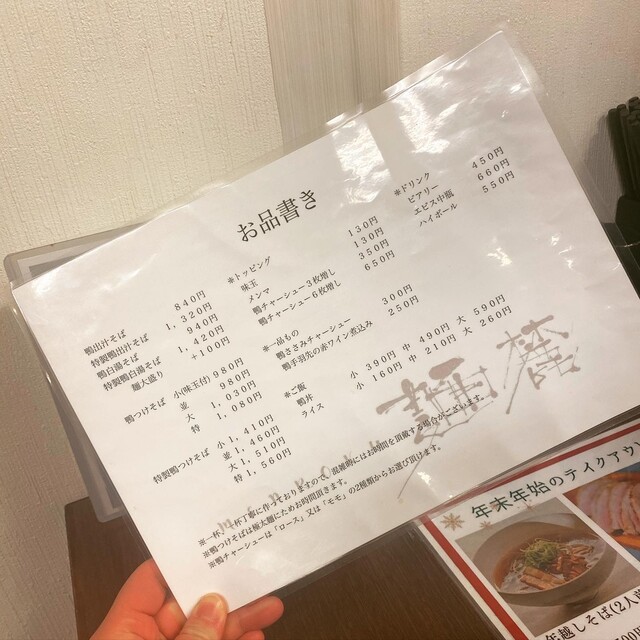 お品書き
鴨出汁そば 840円
特製鴨出汁そば 1,320円
鴨白湯そば 940円
特製鴨白湯そば 1,420円
麺大盛り +100円
鴨つけそば 小(味玉付) 980円
並 980円
大 1,030円
特 1,080円
特製鴨つけそば 小 1,410円
並 1,460円
大 1,510円
特 1,560円
※トッピング
味玉 130円
メンマ 130円
鴨チャーシュー3枚増し 350円
鴨チャーシュー6枚増し 650円
※一品もの
鴨ささみチャーシュー 300円
鴨手羽先の赤ワイン煮込み 250円
※ご飯
鴨丼 小 390円 中 490円 大 590円
ライス 小 160円 中 210円 大 260円
※ドリンク
ビアリー 450円
エビス中瓶 660円
ハイボール 550円
※一杯、一杯丁寧に作っておりますので、混雑時にはお時間を頂戴する場合がございます。
※鴨つけそばは極太麺にためお時間頂きます。
※鴨チャーシューは「ロース」又は「モモ」の2種類からお選び頂けます。
麺
年末年始のテイクアウ
年越しそば(2人前